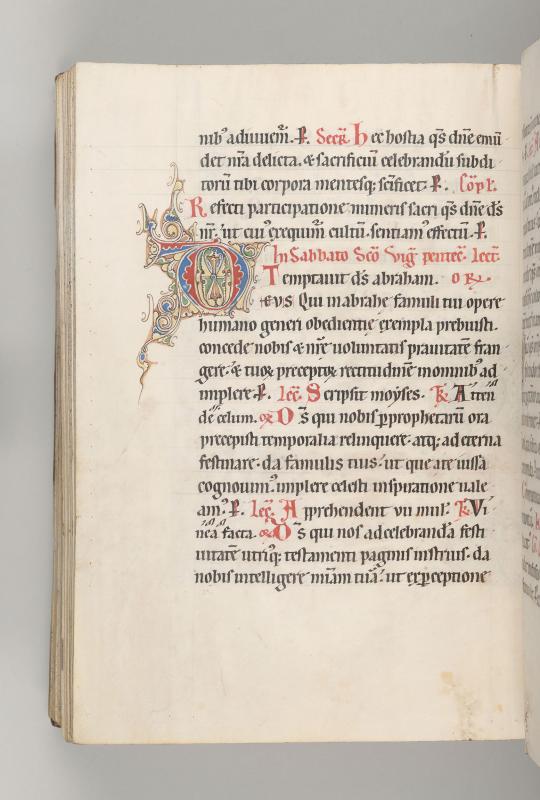 nibꝰ adiuuem̄. P̲. Secr̄. Hec hostia q̄s dn̄e emū
det nr̄a delicta. & sacrificiū celebrandū subdi
torū tibi corpora mentesq; sc̄ificet. P̲. Cōpl.
Refecti participatione muneris sacri q̄s dn̄e d̄s
nr̄. ut cuiꝰ exequim̄ cultū. sentiamꝰ effectū. P̲.
In Sabbato Sc̄o Viḡ pentec̄. lect.
Temptauit d̄s abraham. OR̄.
DEVS Qui in abrahe famuli tui opere
humano generi obedientie exempla prebuisti.
concede nobis & nr̄e uoluntatis prauitatē fran
gere. & tuoꝝ preceptoꝝ rectitudinē in omnibꝰ ad
implere. P̲. lec̄. Scripsit moyses. Tr̄. Atten
de celum. or̄ Ds̄ qui nobis p̲ prophetarū ora
precepisti temporalia relinquere. atq; ad eterna
festinare. da famulis tuis. ut que a te iussa
cognouimꝰ. implere celesti inspiratione uale
amꝰ. P̲. lec̄. Apprehendent vii mul. Tr̄. Vi
nea facta. or̄ Ds̄ qui nos ad celebrandā festi
uitatē utriꝰq; testamenti paginis instruis. da
nobis intelligere mīam tuā. ut ex p̲ceptione